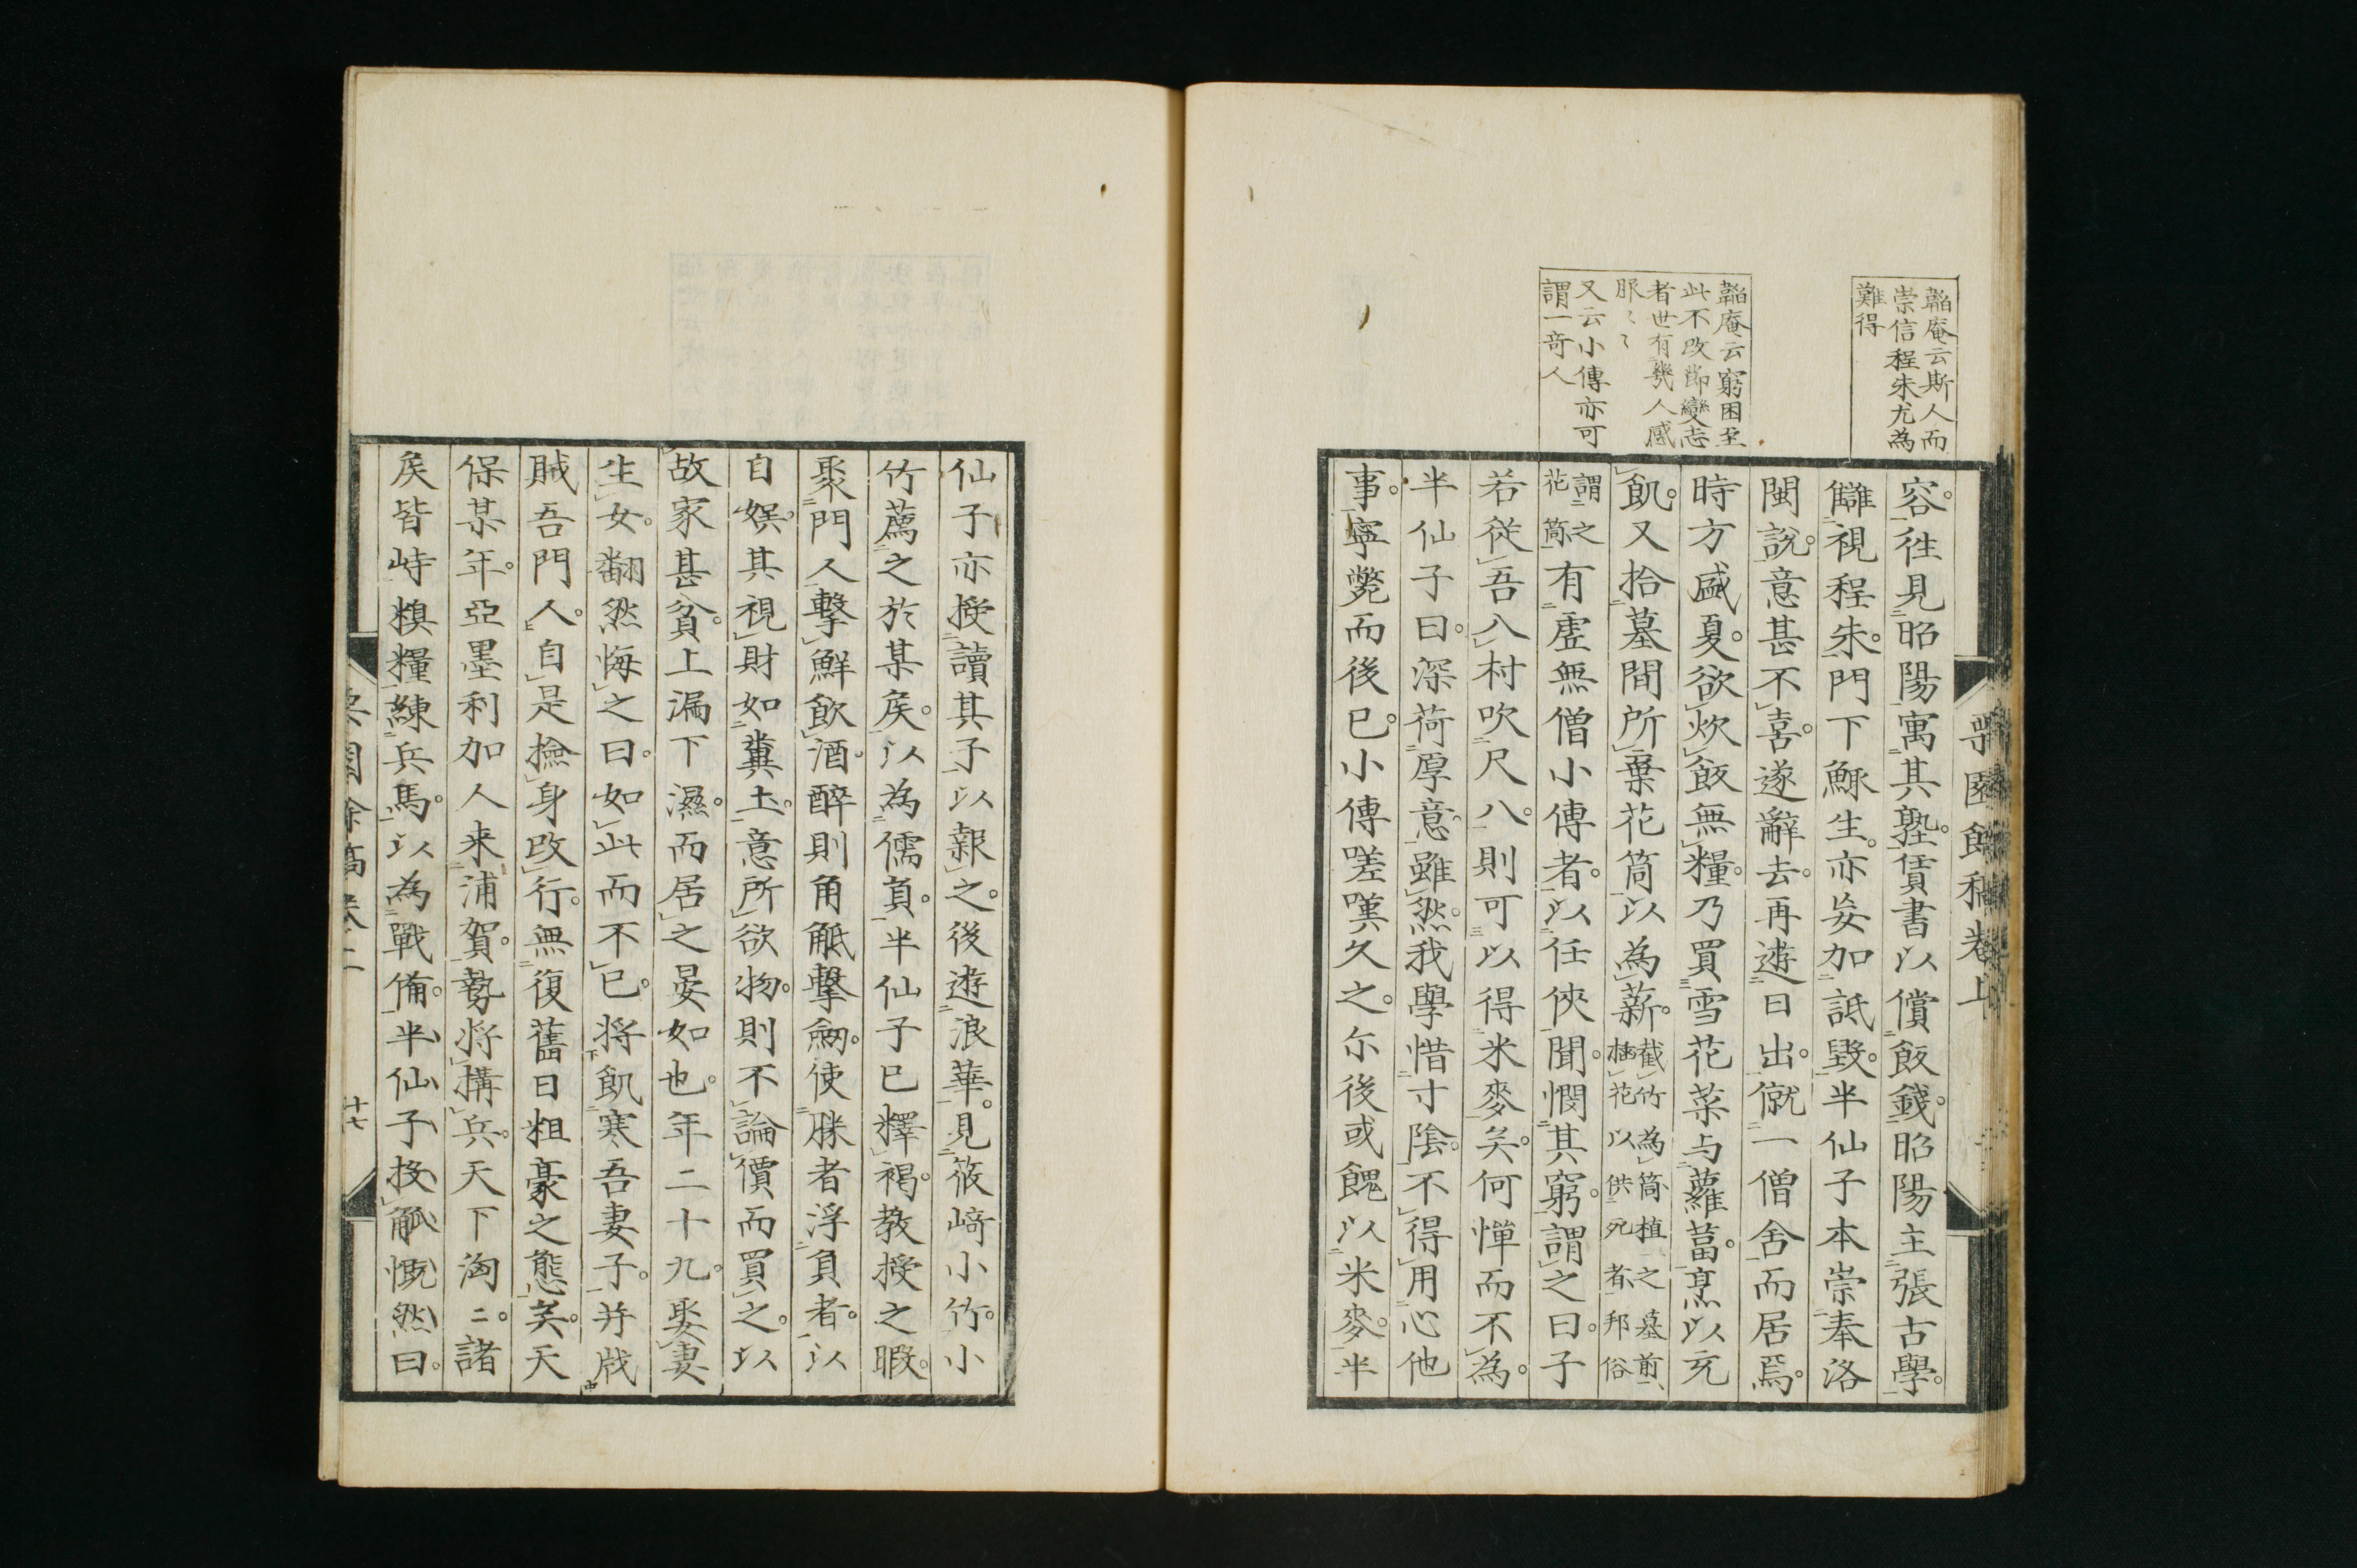 韜庵云斯人而
崇信程朱尤為
難得
韜庵云窮困至
此不改節變志
者世有幾人感
服〻〻
又云小傳亦可
謂一奇人
容。徃見昭陽寓其塾。賃書以償飯錢。昭陽主張古學。
讎視程朱。門下穌生。亦妄加詆毀。半仙子本崇奉洛
閩說。意甚不喜。遂辭去。再遊日出。僦一僧舍而居焉。
時方盛夏。欲炊飯無糧。乃買雪花菜与蘿葍。烹以充
飢。又拾墓間所棄花筒以為薪。截竹為筒植之墓前、
插花以供死者、邦俗
謂之
花筒有虛無僧小傳者。以任俠聞。憫其窮。謂之曰。子
若從吾入村吹尺八。則可以得米麥矣。何憚而不為。
半仙子曰。深荷厚意。雖然。我學惜寸陰。不得用心他
事。寧斃而後已。小傳嗟嘆久之。尓後或餽以米麥。半
咢園餘稿卷上
仙子亦授讀其子以報之。後遊浪華。見筱﨑小竹。小
竹薦之於某矦。以為儒員。半仙子已釋褐。教授之暇。
聚門人擊鮮飲酒。醉則角觝擊劔。使勝者浮負者。以
自娯。其視財如糞土。意所欲物。則不論價而買之。以
故家甚貧。上漏下濕。而居之晏如也。年二十九。娶妻
生女。翻然悔之曰。如此而不已。將飢寒吾妻子。并戕
賊吾門人。自是撿身改行。無復舊日粗豪之態矣。天
保某年。亞墨利加人来浦賀。勢將搆兵。天下洶〻。諸
矦皆峙糗糧練兵馬。以為戰備。半仙子投觚慨然曰。
十七